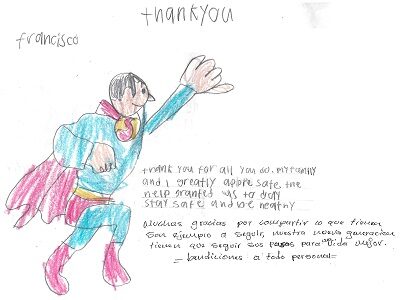 thankyou
francisco
thank you for all you do. My family
and I greatly appre safe the
help granted us to day
stay safe and be healthy
Muchas gracias por compartir lo que tienen
son ejemplo a seguir, nuestra nueva generacion
tienen que seguir sus pasos para una vida mejor.
bendiciones a todo personal